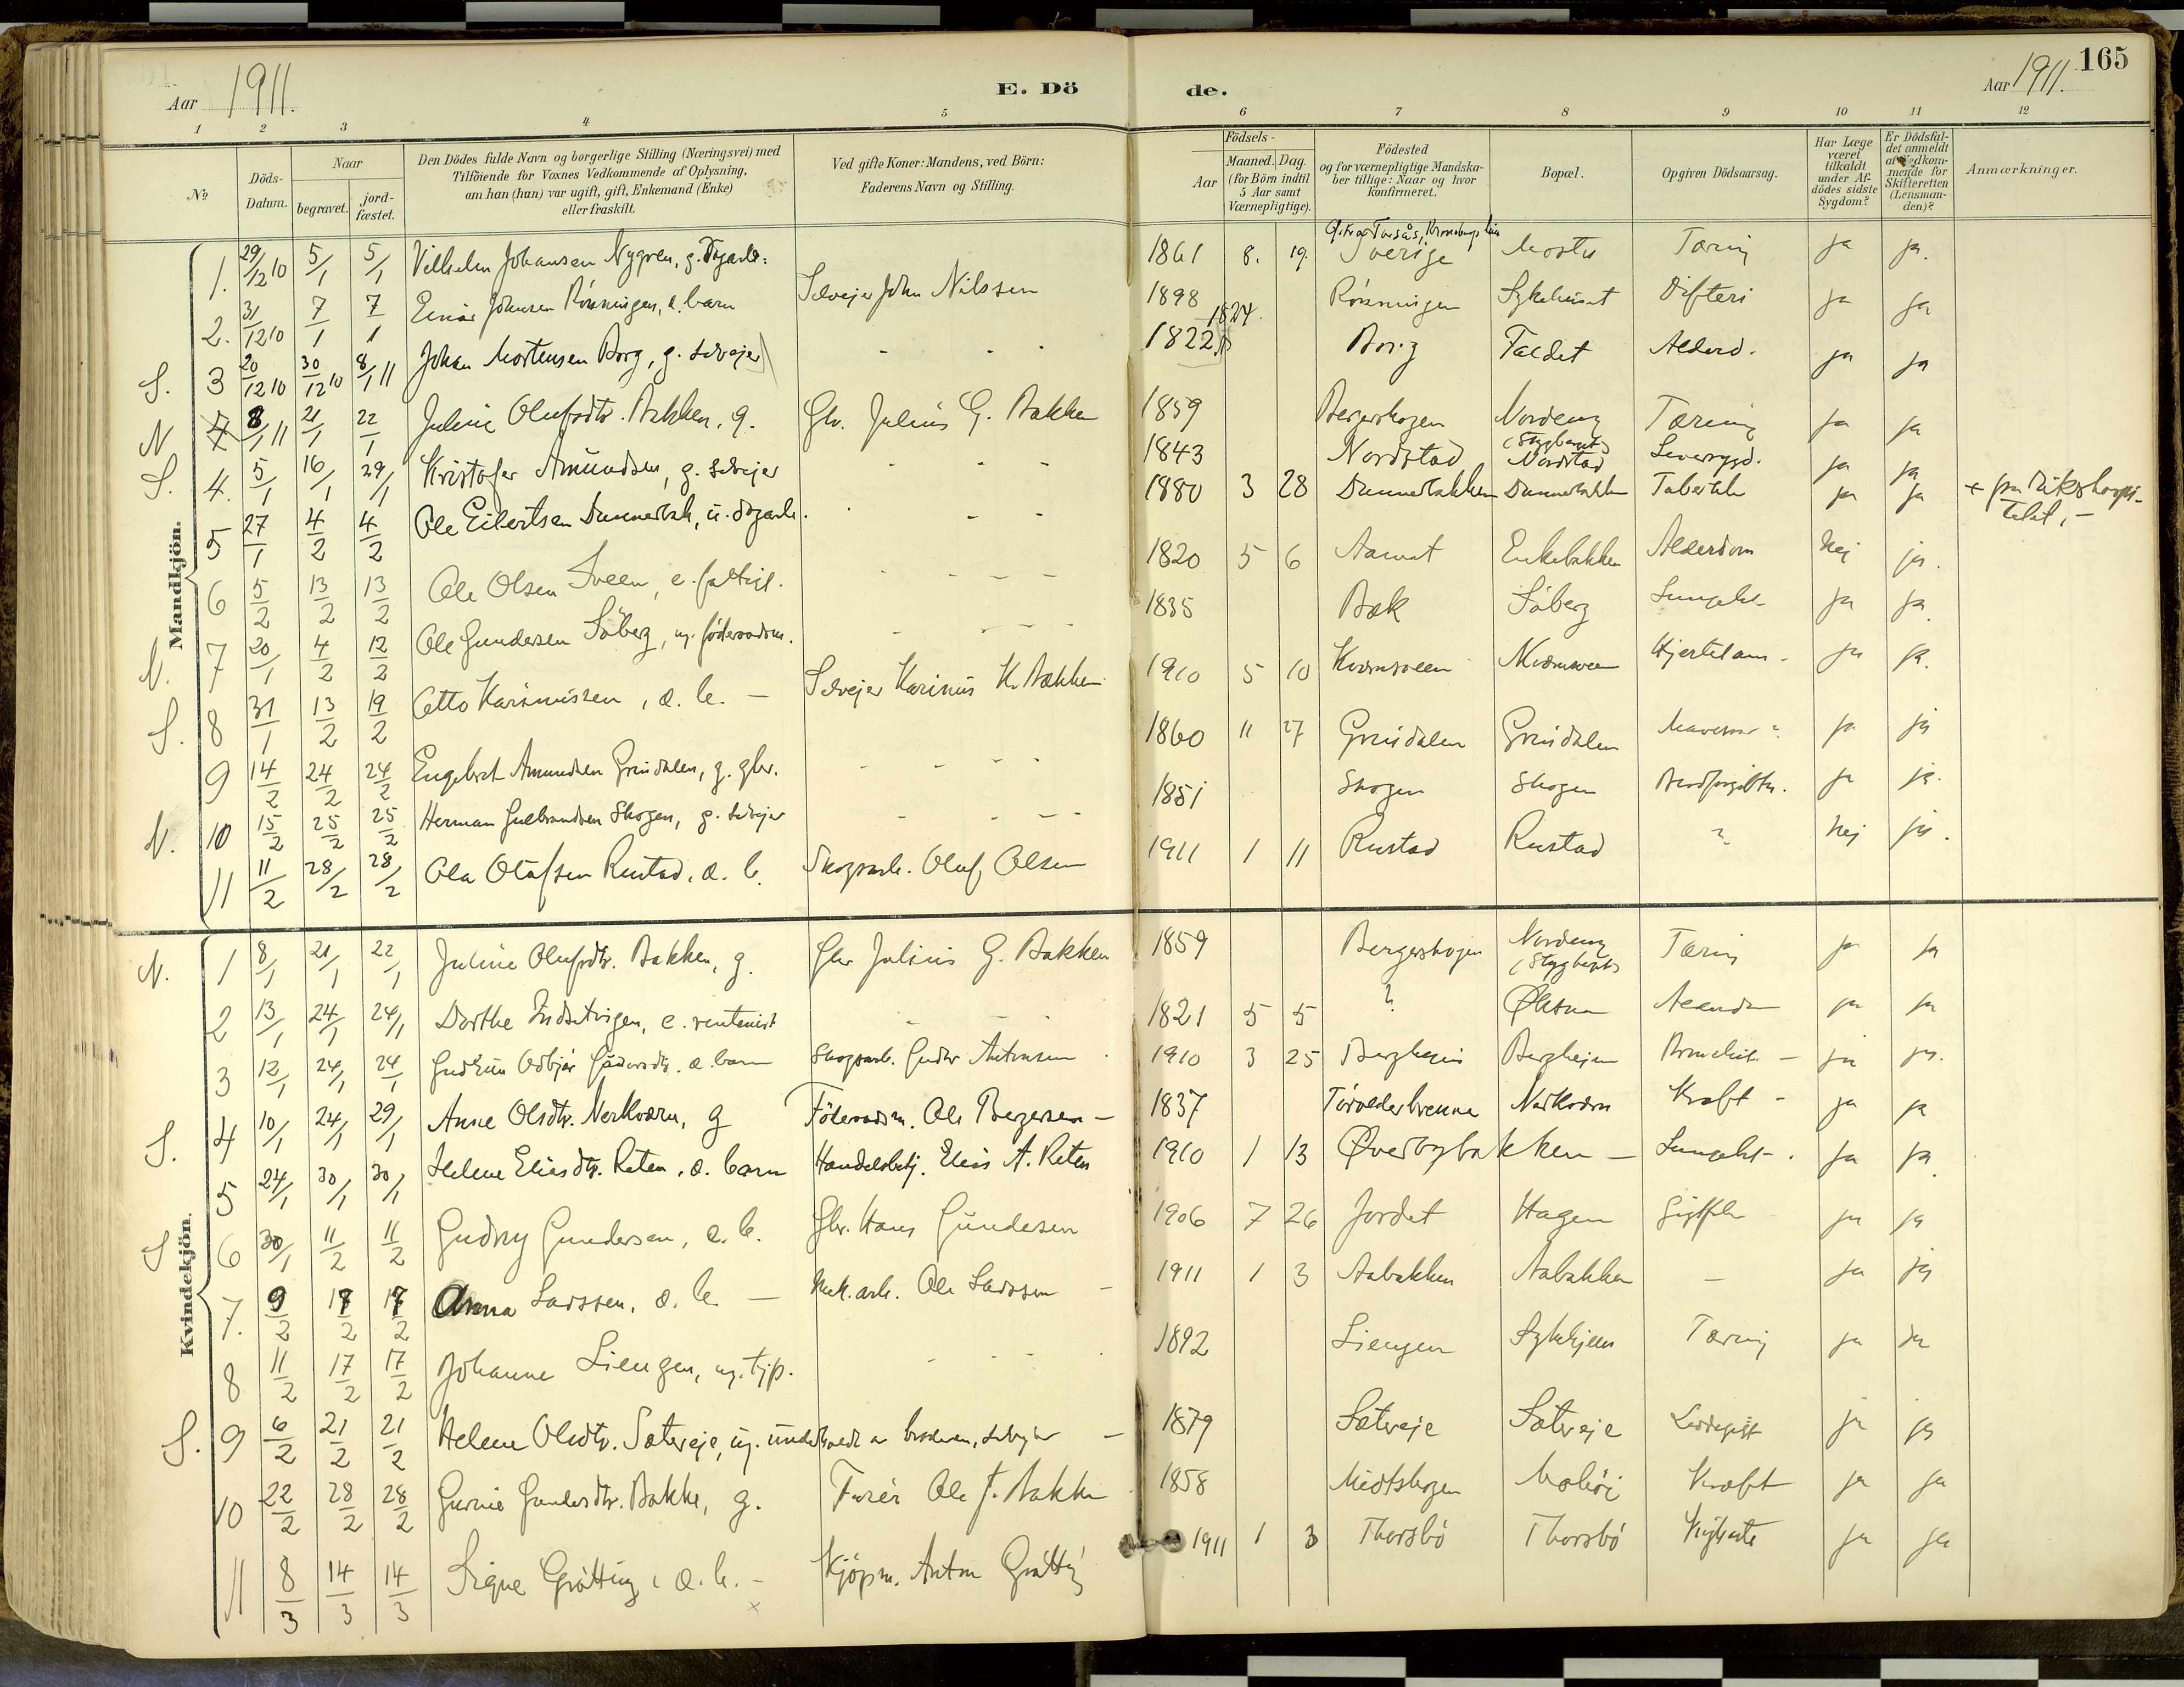 165
Aar 1911.
E. Dö
de.
Aar 1911.
1 2 3 4 5 6 7 8 9 10 11 12
No
Döds-Datum.
Naar
begravet.
jord-fæstet.
Den Dödes fulde Navn og borgerlige Stilling (Næringsvei) med
Tilföiende for Voxnes Vedkommende af Oplysning,
om han (hun) var ugift, gift, Enkemand (Enke)
eller fraskilt.
Ved gifte Koner: Mandens, ved Börn:
Faderens Navn og Stilling.
Födsels-
Aar
Maaned. Dag.
(for Börn indtil
5 Aar samt
Værnepligtige).
Födested
og for værnepligtige Mandska-
ber tillige: Naar og hvor
konfirmeret.
Bopæl.
Opgiven Dödsaarsag.
Har Læge
været
tilkaldt
under Af-
dödes sidste
Sygdom?
Er Dödsfal-
det anmeldt
af Vedkom-
mende for
Skifteretten
(Lensman-
den)?
Anmærkninger.
Mandkjön.
1. 29/12 10 5/1 5/1 Vilhelm Johansen Nygren, g. 1861 8. 19. Sverige Tæring ja ja.
2. 31/12 10 7/1 7/1 Einar Johnsen Rönningen, e. barn Selvejer John Nilssen 1898 Rönningen Sykehuset Difteri ja ja
1824.
S. 3 20/12 10 30/12 10 8/1 11 Johan Mortensen Borg, g. selvejer - - - 1822 Borg Faldet Alderd. ja ja
N 4 8/1 11 21/1 22/1 Juline Olufsdtr. Bakken, g. Gbr. Julius G. Bakken 1859 Bergershagen Nordeng Tæring ja ja
S. 4. 5/1 16/1 29/1 Kristofer Amundsen, g. selvejer - - - 1843 Nordstad Nordstad Leversygd. ja ja
5 27/1 4/2 4/2 Ole Eilertsen 1880 3 28 Dunnerbakken Dunnerbakken ja ja + paa Rikshospi-
talet, -
6 5/2 13/2 13/2 Ole Olsen Sveen, e. - - - - 1820 5 6 Enkebakken Alderdom Nej ja.
N. 7 20/1 4/2 12/2 Ole Gundersen Söberg, ug. - - - - 1835 Bæk Söberg ja ja.
S. 8 31/1 13/2 19/2 Otto Karinussen, æ. b. - Selvejer Karinus K. Bakken 1910 5 10 Kværnsveen Kværnsveen ja ja.
9 14/2 24/2 24/2 Engebret Amundsen Grindalen, g. gbr. - - - - 1860 11 27 Grindalen Grindalen ja ja
N. 10 15/2 25/2 25/2 Herman Gulbrandsen Skogen, g. selvejer - - - - 1851 Skogen Skogen ja ja.
11 11/2 28/2 28/2 Ola Olafsen Rustad, æ. b. Skogsarb. Oluf Olsen 1911 1 11 Rustad Rustad ? Nej ja.
Kvindekjön.
N. 1 8/1 21/1 22/1 Juline Olufsdtr. Bakken, g. Gbr Julius G. Bakken 1859 Bergershagen Nordeng Tæring ja ja
2 13/1 24/1 24/1 Dorthe e. - - - 1821 5 5 ? ja ja
3 12/1 24/1 24/1 Gudrun Odbjör æ. barn Skogsarb. 1910 3 25 Bergheim Bergheim - ja ja.
S. 4 10/1 24/1 29/1 Anne Olsdtr. Nerkværn, g Föderaadsm. Ole Bergersen - 1837 Nerkværn Kræft - ja ja
5 24/1 30/1 30/1 Helene Eliasdtr. Reten, æ. barn Handelsbetj. Elias A. Reten 1910 1 13 Överbybakken - ja ja.
S 6 30/1 11/2 11/2 Gudny Gundersen, e. b. Gbr. Hans Gundersen 1906 7 26 Jordet Hagen ja ja
7. 9/2 17/2 17/2 Anna Larssen, æ. b. - Ole Larssen - 1911 1 3 Aabakken Aabakken - ja ja
8 11/2 17/2 17/2 Johanne Liengen, ug. tjp. - - - 1892 Liengen Sykehjem Tæring ja ja
S. 9 6/2 21/2 21/2 Helene Olsdtr. Sætereje, ug. underholdt av broderen, selvejer - 1879 Sætereje Sætereje Leddegigt ja ja
10 22/2 28/2 28/2 Gundersdtr. Bakke, g. Furér Ole J. Bakke 1858 Midtskogen Kræft ja ja
11 8/3 14/3 14/3 Signe Grötting, æ. b. - Kjöpm. Anton Grötting 1911 1 3 Thorsbö Thorsbö Kighoste ja ja